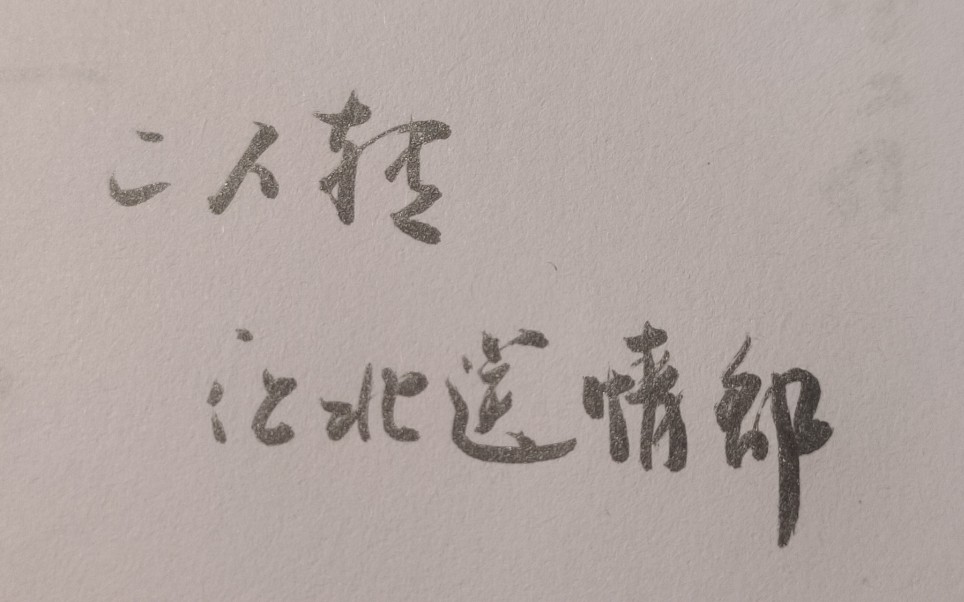 二人转
江北送情郎